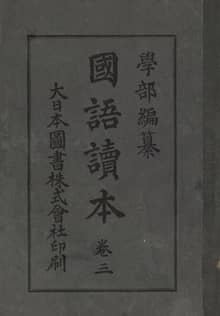 學部編纂
國語讀本 卷三
大日本圖書株式會社印刷